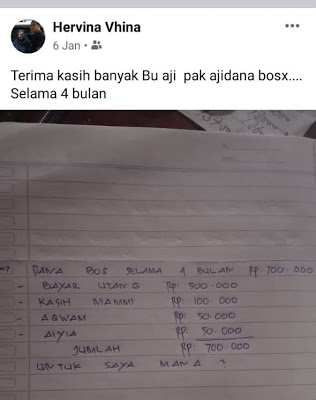 Hervina Vhina
6 Jan
Terima kasih banyak Bu aji pak ajidana bosx....
Selama 4 bulan
DANA BOS SELAMA 4 BULAN Rp. 700.000
- BAYAR UTANG Rp. 500.000
- KASIH MAMMI Rp. 100.000
- AQWAM Rp. 50.000
- Rp. 50.000
JUMLAH Rp. 700.000
UNTUK SAYA MANA ?